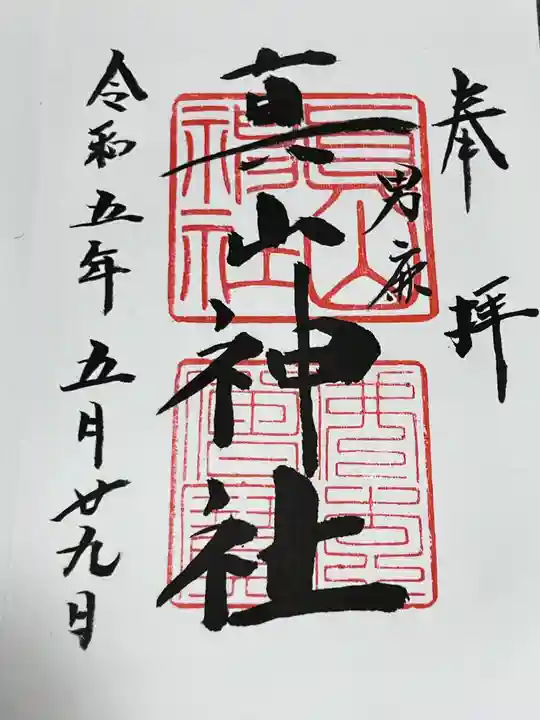 奉拝
男鹿
真山神社
令和五年五月廿九日
真山神社